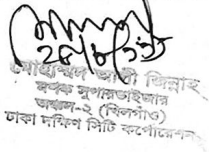 মোহাম্মদ আলী জিন্নাহ
সুপারভাইজার
অঞ্চল-২ (খিলগাঁও)
ঢাকা দক্ষিণ সিটি কর্পোরেশন